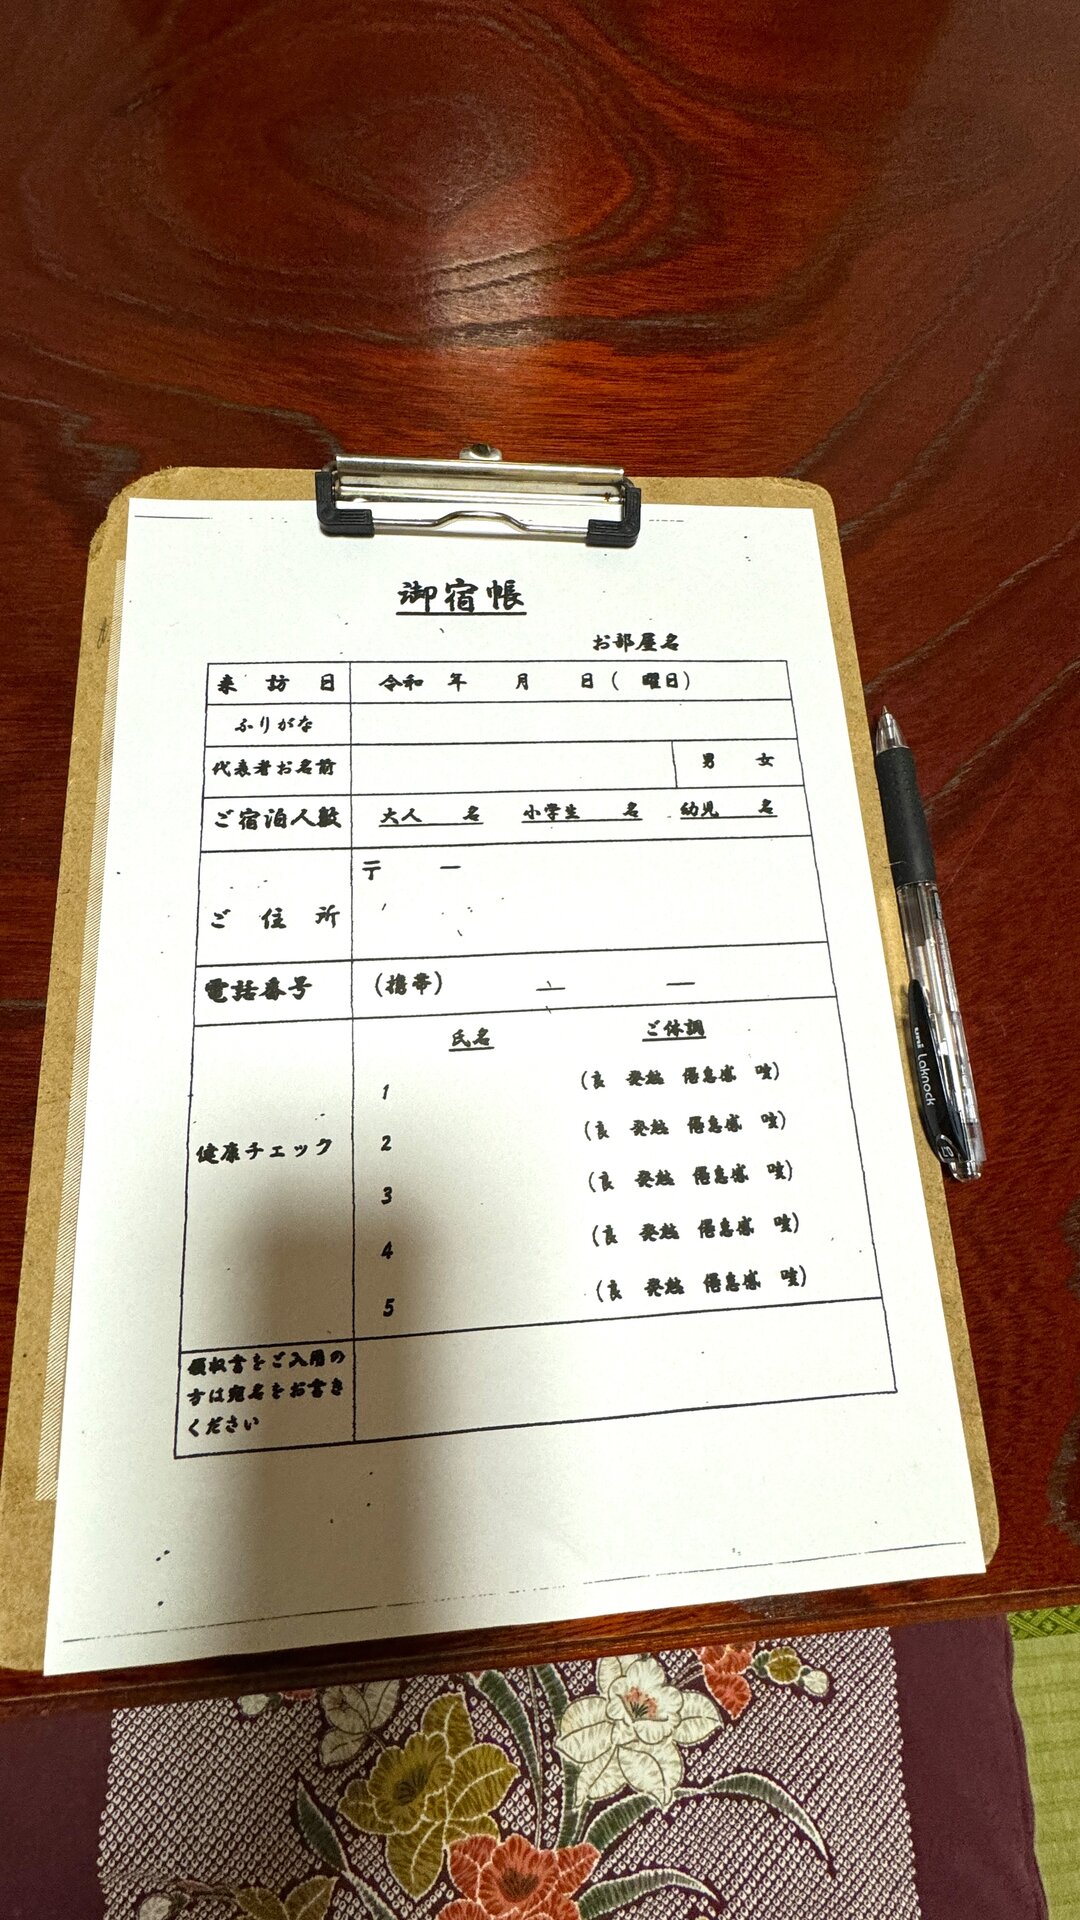 御宿帳
お部屋名
来 訪 日 令和 年 月 日 ( 曜日)
ふりがな
代表者お名前 男 女
ご宿泊人数 大人 名 小学生 名 幼児 名
〒 ー
ご 住 所
電話番号 (携帯) ー ー
氏名 ご体調
1 (良 発熱 倦怠感 咳)
2 (良 発熱 倦怠感 咳)
健康チェック
3 (良 発熱 倦怠感 咳)
4 (良 発熱 倦怠感 咳)
5 (良 発熱 倦怠感 咳)
領収書をご入用の
方は宛名をお書き
ください
uni laknock